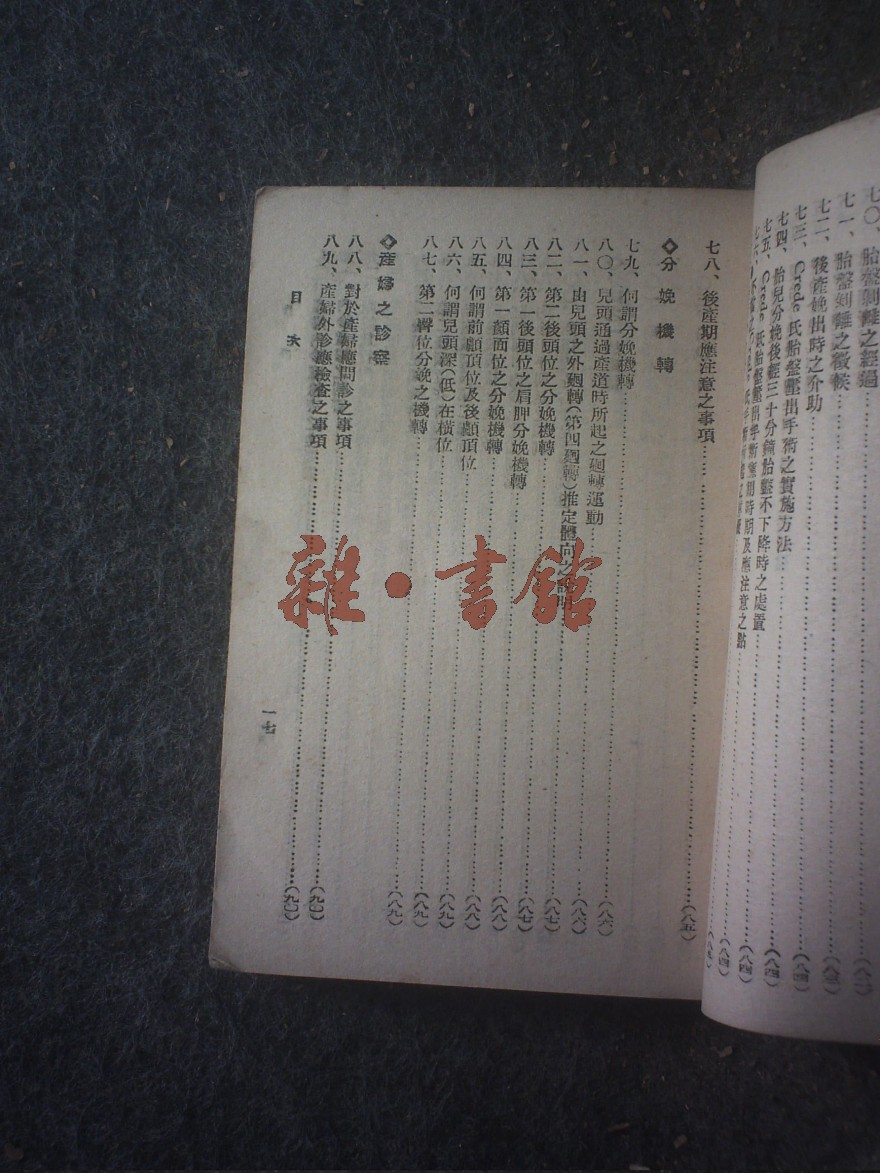 七〇、胎盤剝離之經過
七一、胎盤剝離之徵候
七二、後產娩出時之介助
七三、Crede 氏胎盤壓出手術之實施方法……(八四)
七四、胎兒分娩後經三十分鐘胎盤不下降時之處置……(八四)
七五、Crede 氏胎盤壓出手術應用時期及應注意之點……(八四)
七八、後產期應注意之事項……(八五)
◇分娩機轉
七九、何謂分娩機轉……(八六)
八〇、兒頭通過產道時所起之廻轉運動……(八六)
八一、由兒頭之外廻轉(第四廻轉)推定體向之說明……(八七)
八二、第二後頭位之分娩機轉……(八七)
八三、第一後頭位之肩胛分娩機轉……(八八)
八四、第一顏面位之分娩機轉……(八八)
八五、何謂前顱頂位及後顱頂位……(八九)
八六、何謂兒頭深(低)在橫位……(八九)
八七、第二臀位分娩之機轉……(八九)
◇產婦之診察
八八、對於產婦應問診之事項……(九〇)
八九、產婦外診應檢查之事項……(九〇)
目次
一七
雜·書館